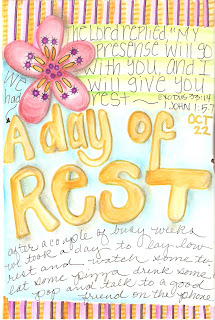 The Lord replied, "MY
presense will go
with you, and I
will give you
rest ~ EXODUS 33:14
JOHN 1:5-7
OCT
22
A day of
REST
after a couple of busy weeks
we took a day to lay low
rest and watch some tv
eat some pizza drink some
pop and talk to a good
friend on the phone